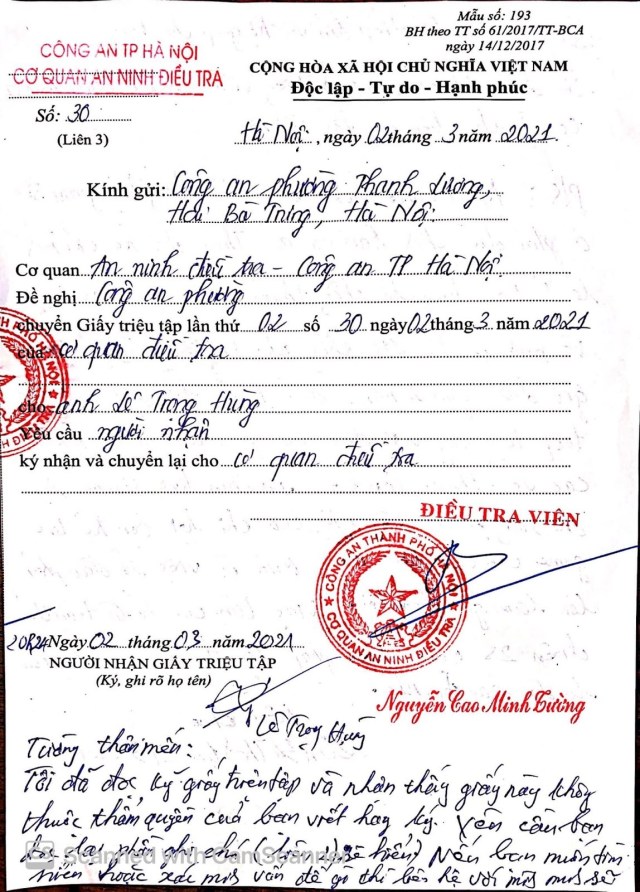 Mẫu số: 193
BH theo TT số 61/2017/TT-BCA
ngày 14/12/2017
CÔNG AN TP HÀ NỘI
CƠ QUAN AN NINH ĐIỀU TRA
Số: 30
(Liên 3)
CỘNG HÒA XÃ HỘI CHỦ NGHĨA VIỆT NAM
Độc lập - Tự do - Hạnh phúc
Hà Nội, ngày 02 tháng 3 năm 2021
Kính gửi: Công an phường Thanh Lương,
Hai Bà Trưng, Hà Nội
Cơ quan An ninh điều tra - Công an TP Hà Nội
Đề nghị Công an phường
chuyển Giấy triệu tập lần thứ 02 số 30 ngày 02 tháng 3 năm 2021
của cơ quan điều tra
cho anh Lê Trọng Hùng
Yêu cầu người nhận
ký nhận và chuyển lại cho cơ quan điều tra
ĐIỀU TRA VIÊN
CÔNG AN THÀNH PHỐ HÀ NỘI
CƠ QUAN AN NINH ĐIỀU TRA
20h24 Ngày 02 tháng 03 năm 2021
NGƯỜI NHẬN GIẤY TRIỆU TẬP
(Ký, ghi rõ họ tên)
Lê Trọng Hùng
Nguyễn Cao Minh Tường
Tường thân mến:
Tôi đã đọc kỹ giấy triệu tập và nhận thấy giấy này không
thuộc thẩm quyền của bạn viết hay ký. Yêu cầu bạn
Nếu bạn muốn tìm
hiểu hoặc xác minh vấn đề gì thì
Scanned with CamScanner